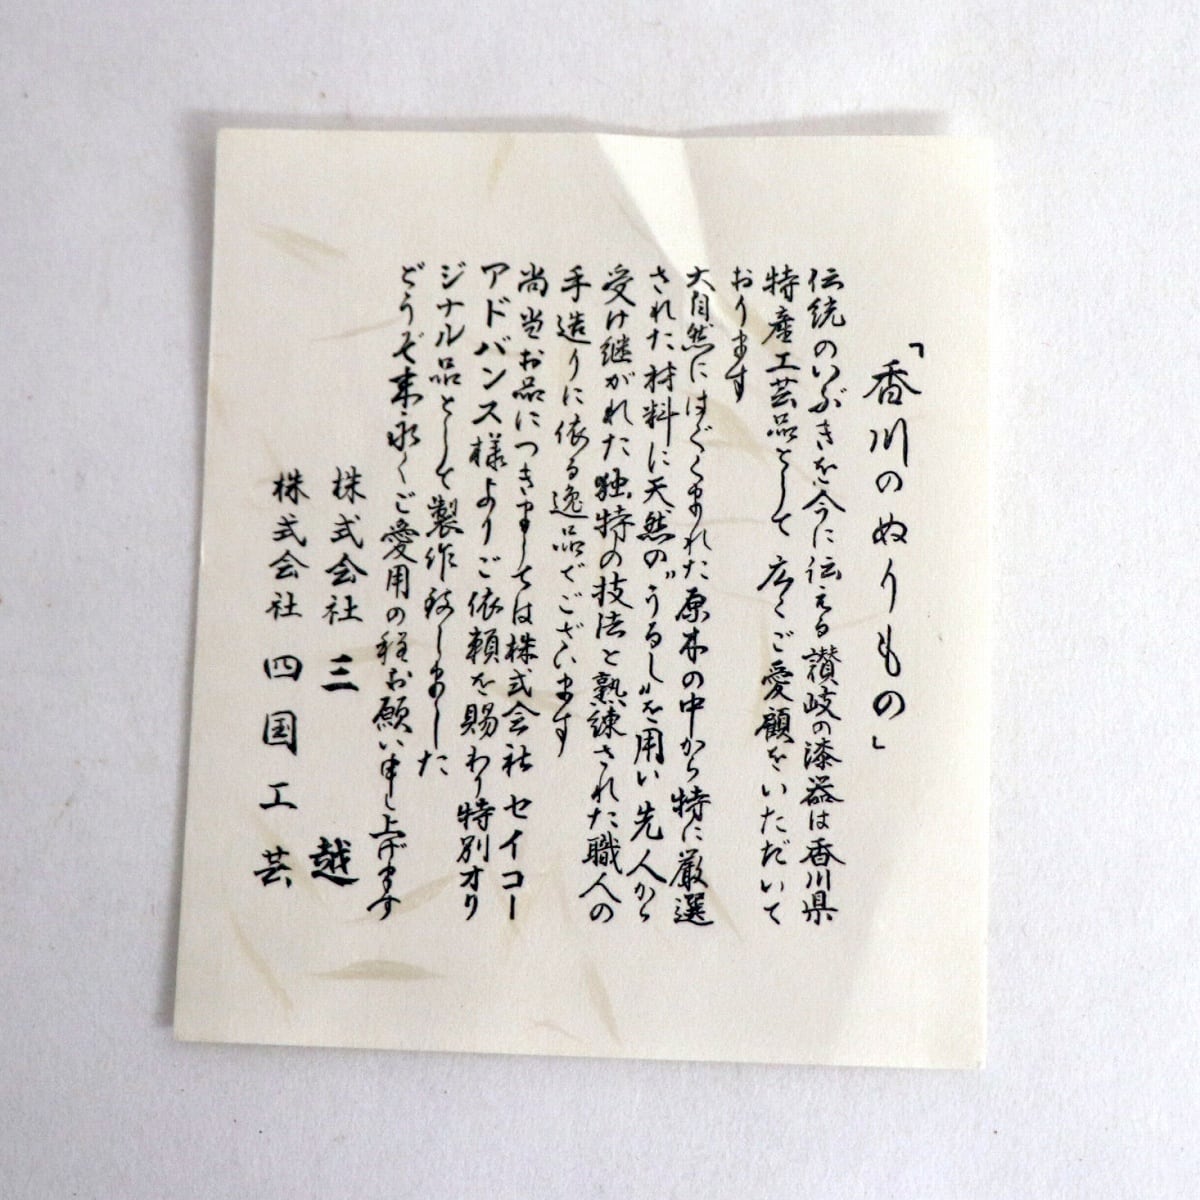 「香川のぬりもの」
伝統のいぶきを今に伝える讃岐の漆器は香川県
特産工芸品として広くご愛顧をいただいて
おります
大自然にはぐくまれた原木の中から特に厳選
された材料に天然の〝うるし〟を用い先人から
受け継がれた独特の技法と熟練された職人の
手造りに依る逸品でございます
尚当お品につきましては株式会社セイコー
アドバンス様よりご依頼を賜わり特別オリ
ジナル品として製作致しました
どうぞ末永くご愛用の程お願い申し上げます
株式会社 三越
株式会社 四国工芸